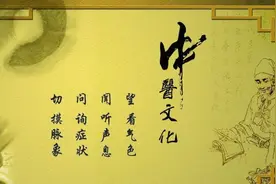 中
醫文化
望看气色
闻听声息
问询症状
切摸脉象